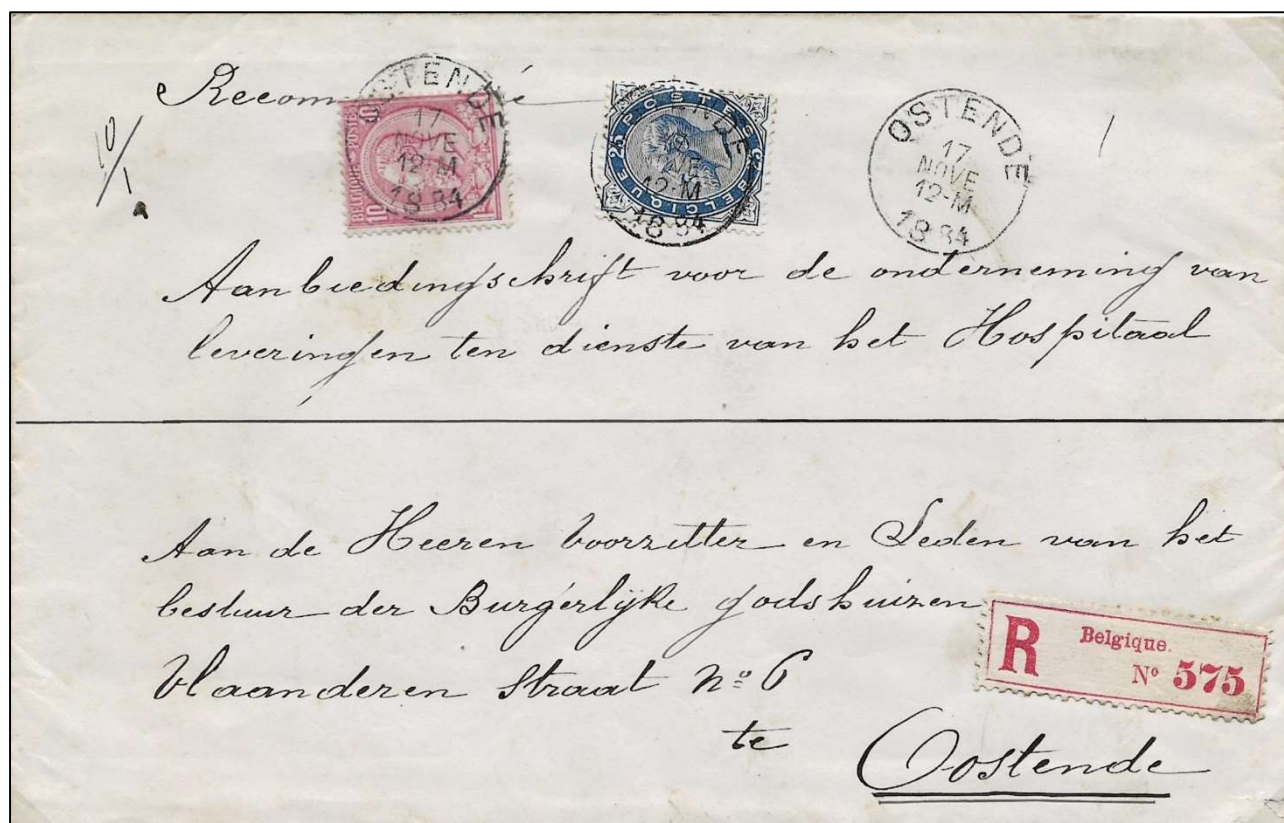 Recom é
10/1
OSTENDE
17
NOVE
12-M
1884
BELGIQUE POSTES
10
POSTES
25 BELGIQUE 25
12-M
1884
OSTENDE
17
NOVE
12-M
1884
Aanbiedingschrift voor de onderneming van
leveringen ten dienste van het Hospitaal
Aan de Heeren Voorzitter en Leden van het
bestuur der Burgerlyke godshuizen
Vlaanderen straat Nº 6
te
Oostende
R Belgique.
Nº 575